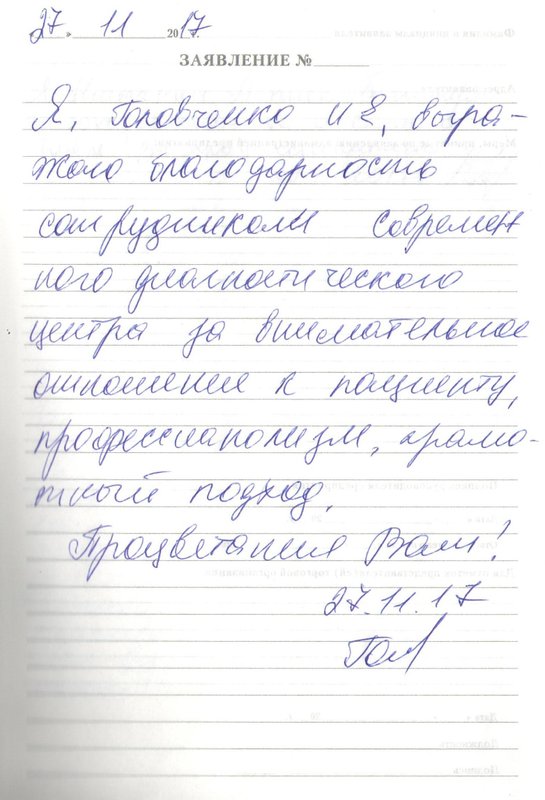 27 » 11 2017
ЗАЯВЛЕНИЕ №
Я, Головченко И Е, выра-
жаю благодарность
сотрудникам современ
ного диагностического
центра за внимательное
отношение к пациенту,
профессионализм, грамо-
тный подход.
Процветания Вам!
27.11.17
Гол